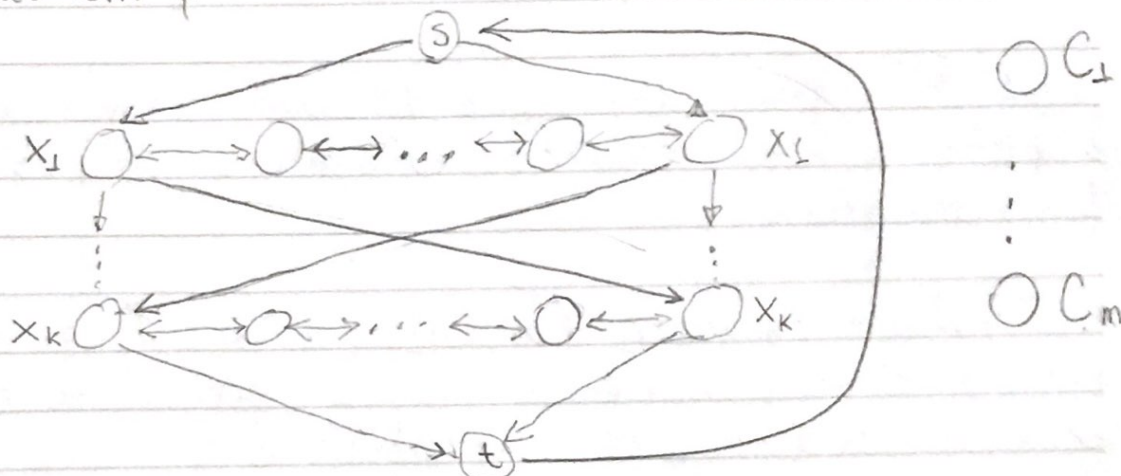 S
C₁
X₁ ... X₁
X_k ... X_k
C_m
t